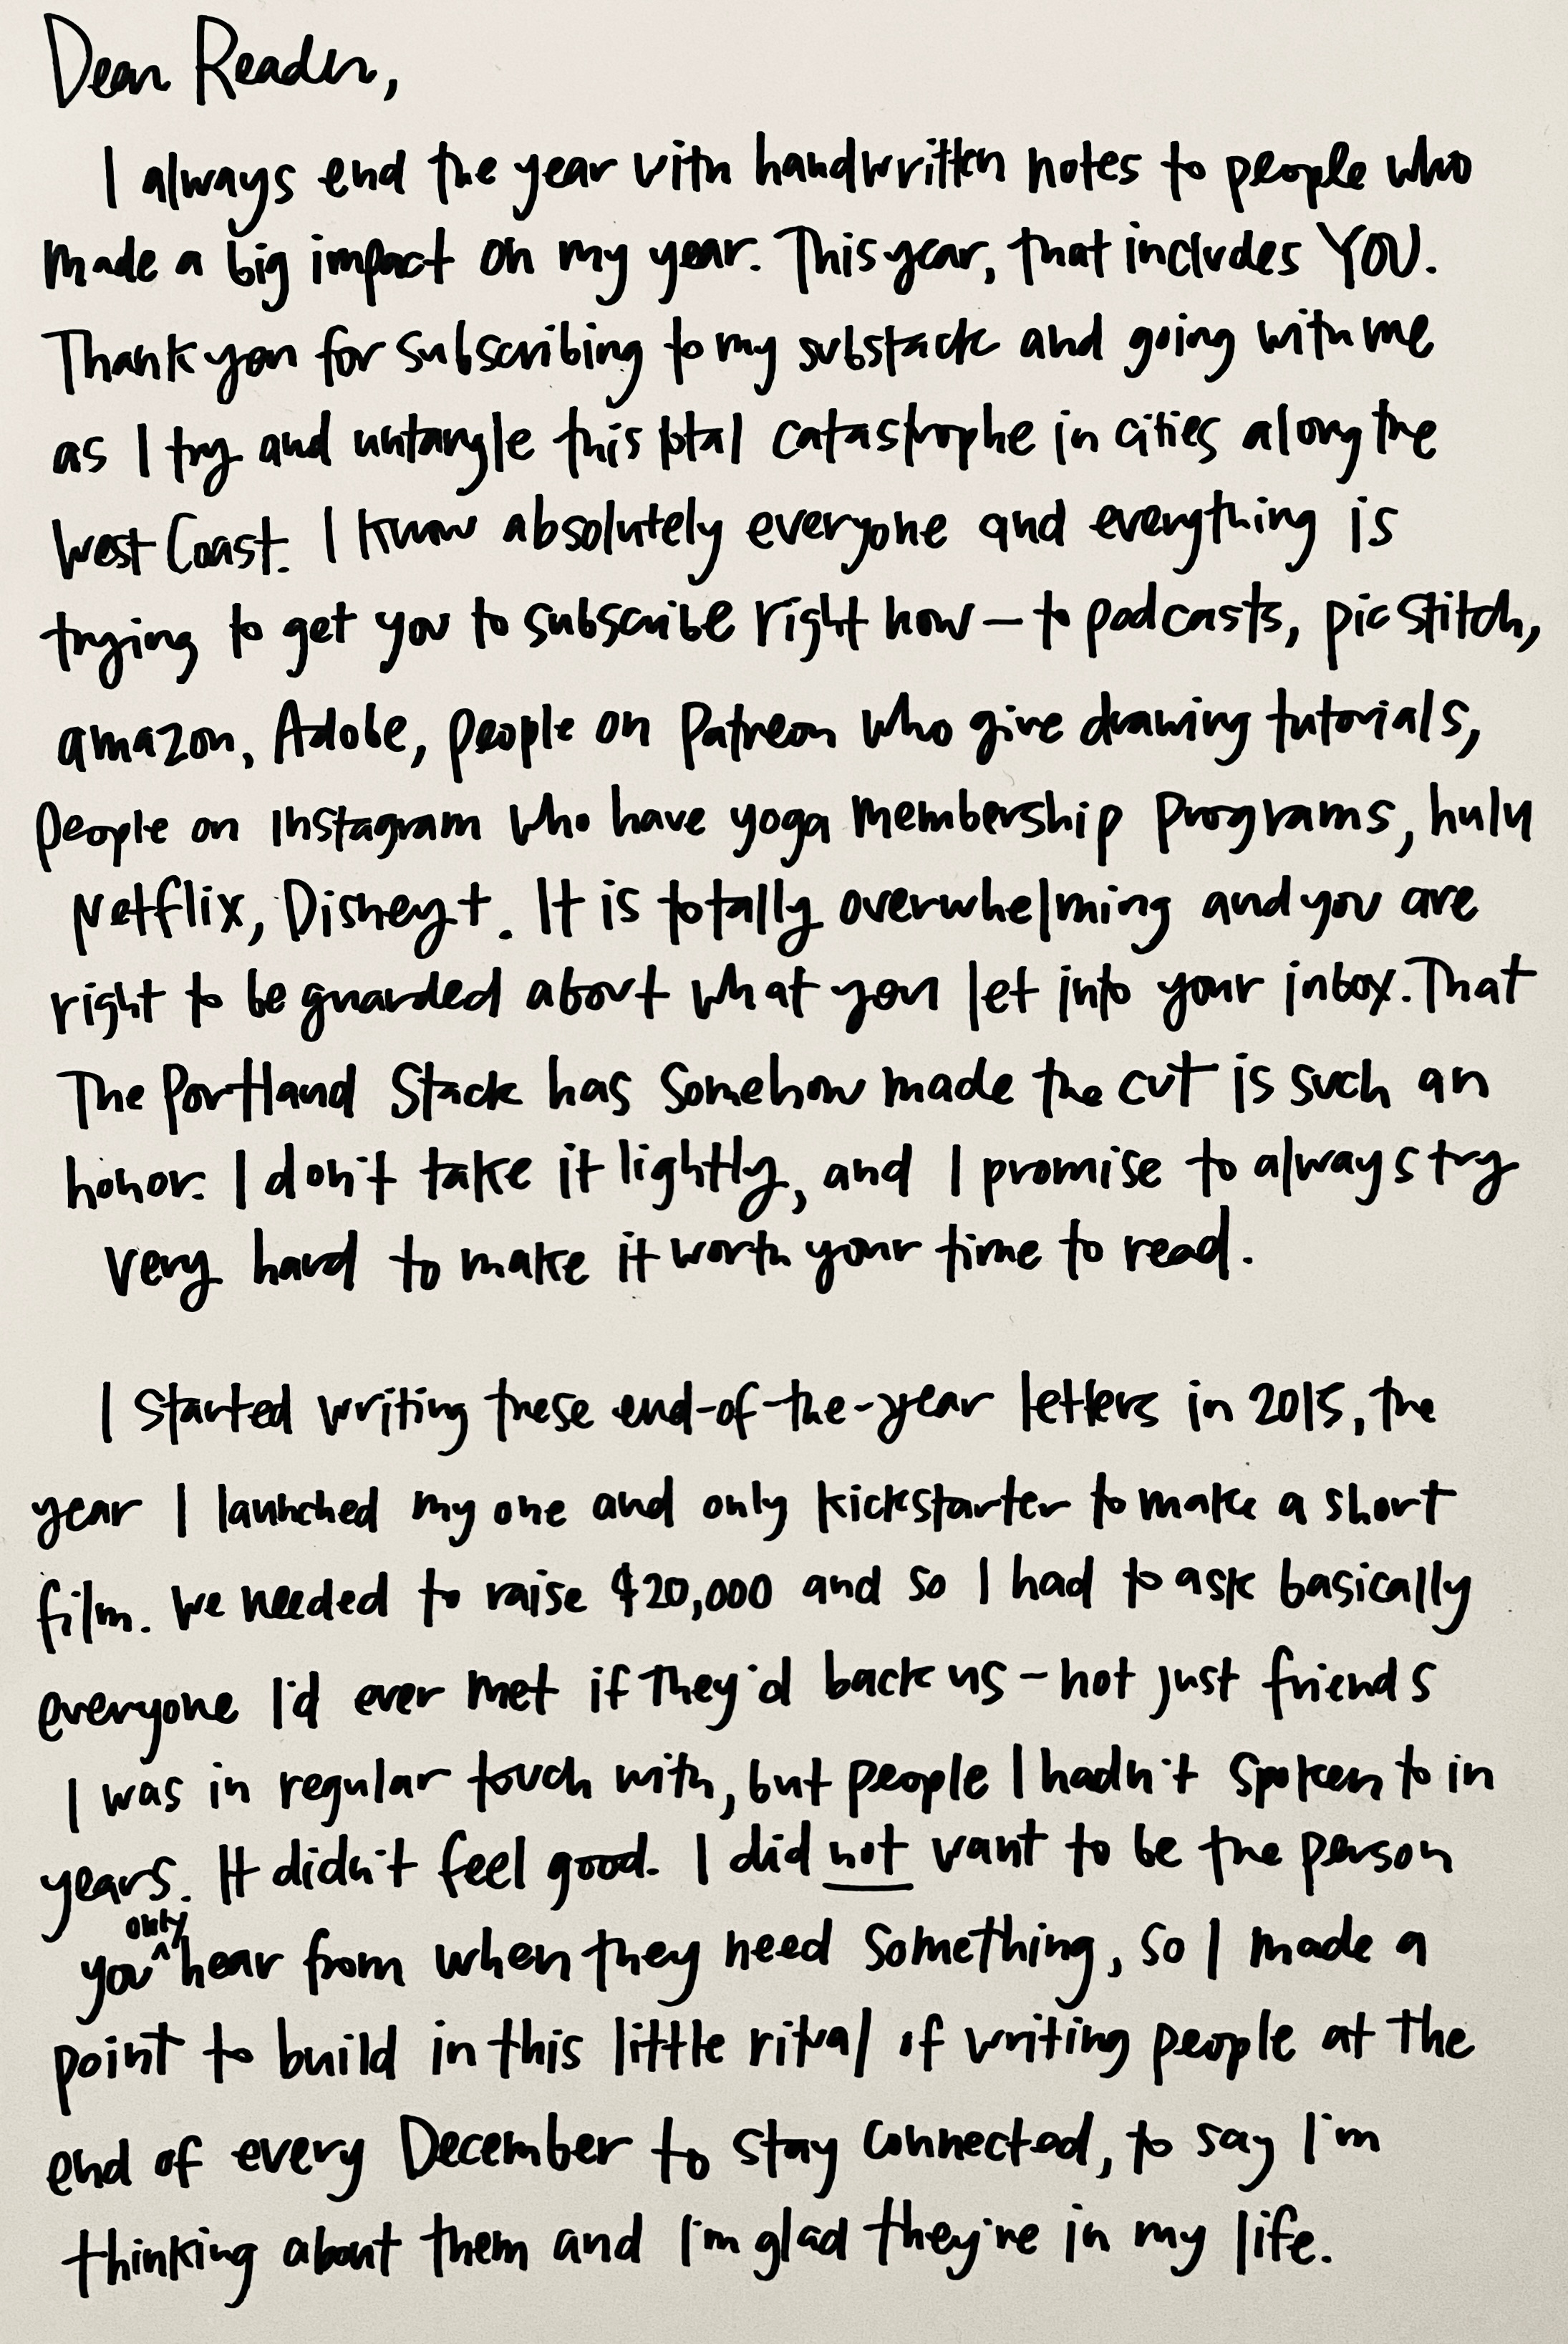 Dear Reader,
I always end the year with handwritten notes to people who
made a big impact on my year. This year, that includes YOU.
Thank you for subscribing to my substack and going with me
as I try and untangle this total catastrophe in cities along the
West Coast. I know absolutely everyone and everything is
trying to get you to subscribe right now – to podcasts, pic stitch,
amazon, Adobe, people on Patreon who give drawing tutorials,
people on Instagram who have yoga membership programs, hulu
Netflix, Disney+. It is totally overwhelming and you are
right to be guarded about what you let into your inbox. That
The Portland Stack has somehow made the cut is such an
honor. I don't take it lightly, and I promise to always try
very hard to make it worth your time to read.
I started writing these end-of-the-year letters in 2015, the
year I launched my one and only kickstarter to make a short
film. We needed to raise $20,000 and so I had to ask basically
everyone I'd ever met if they'd back us – not just friends
I was in regular touch with, but people I hadn't spoken to in
years. It didn't feel good. I did not want to be the person
you only hear from when they need something, so I made a
point to build in this little ritual of writing people at the
end of every December to stay connected, to say I'm
thinking about them and I'm glad they're in my life.